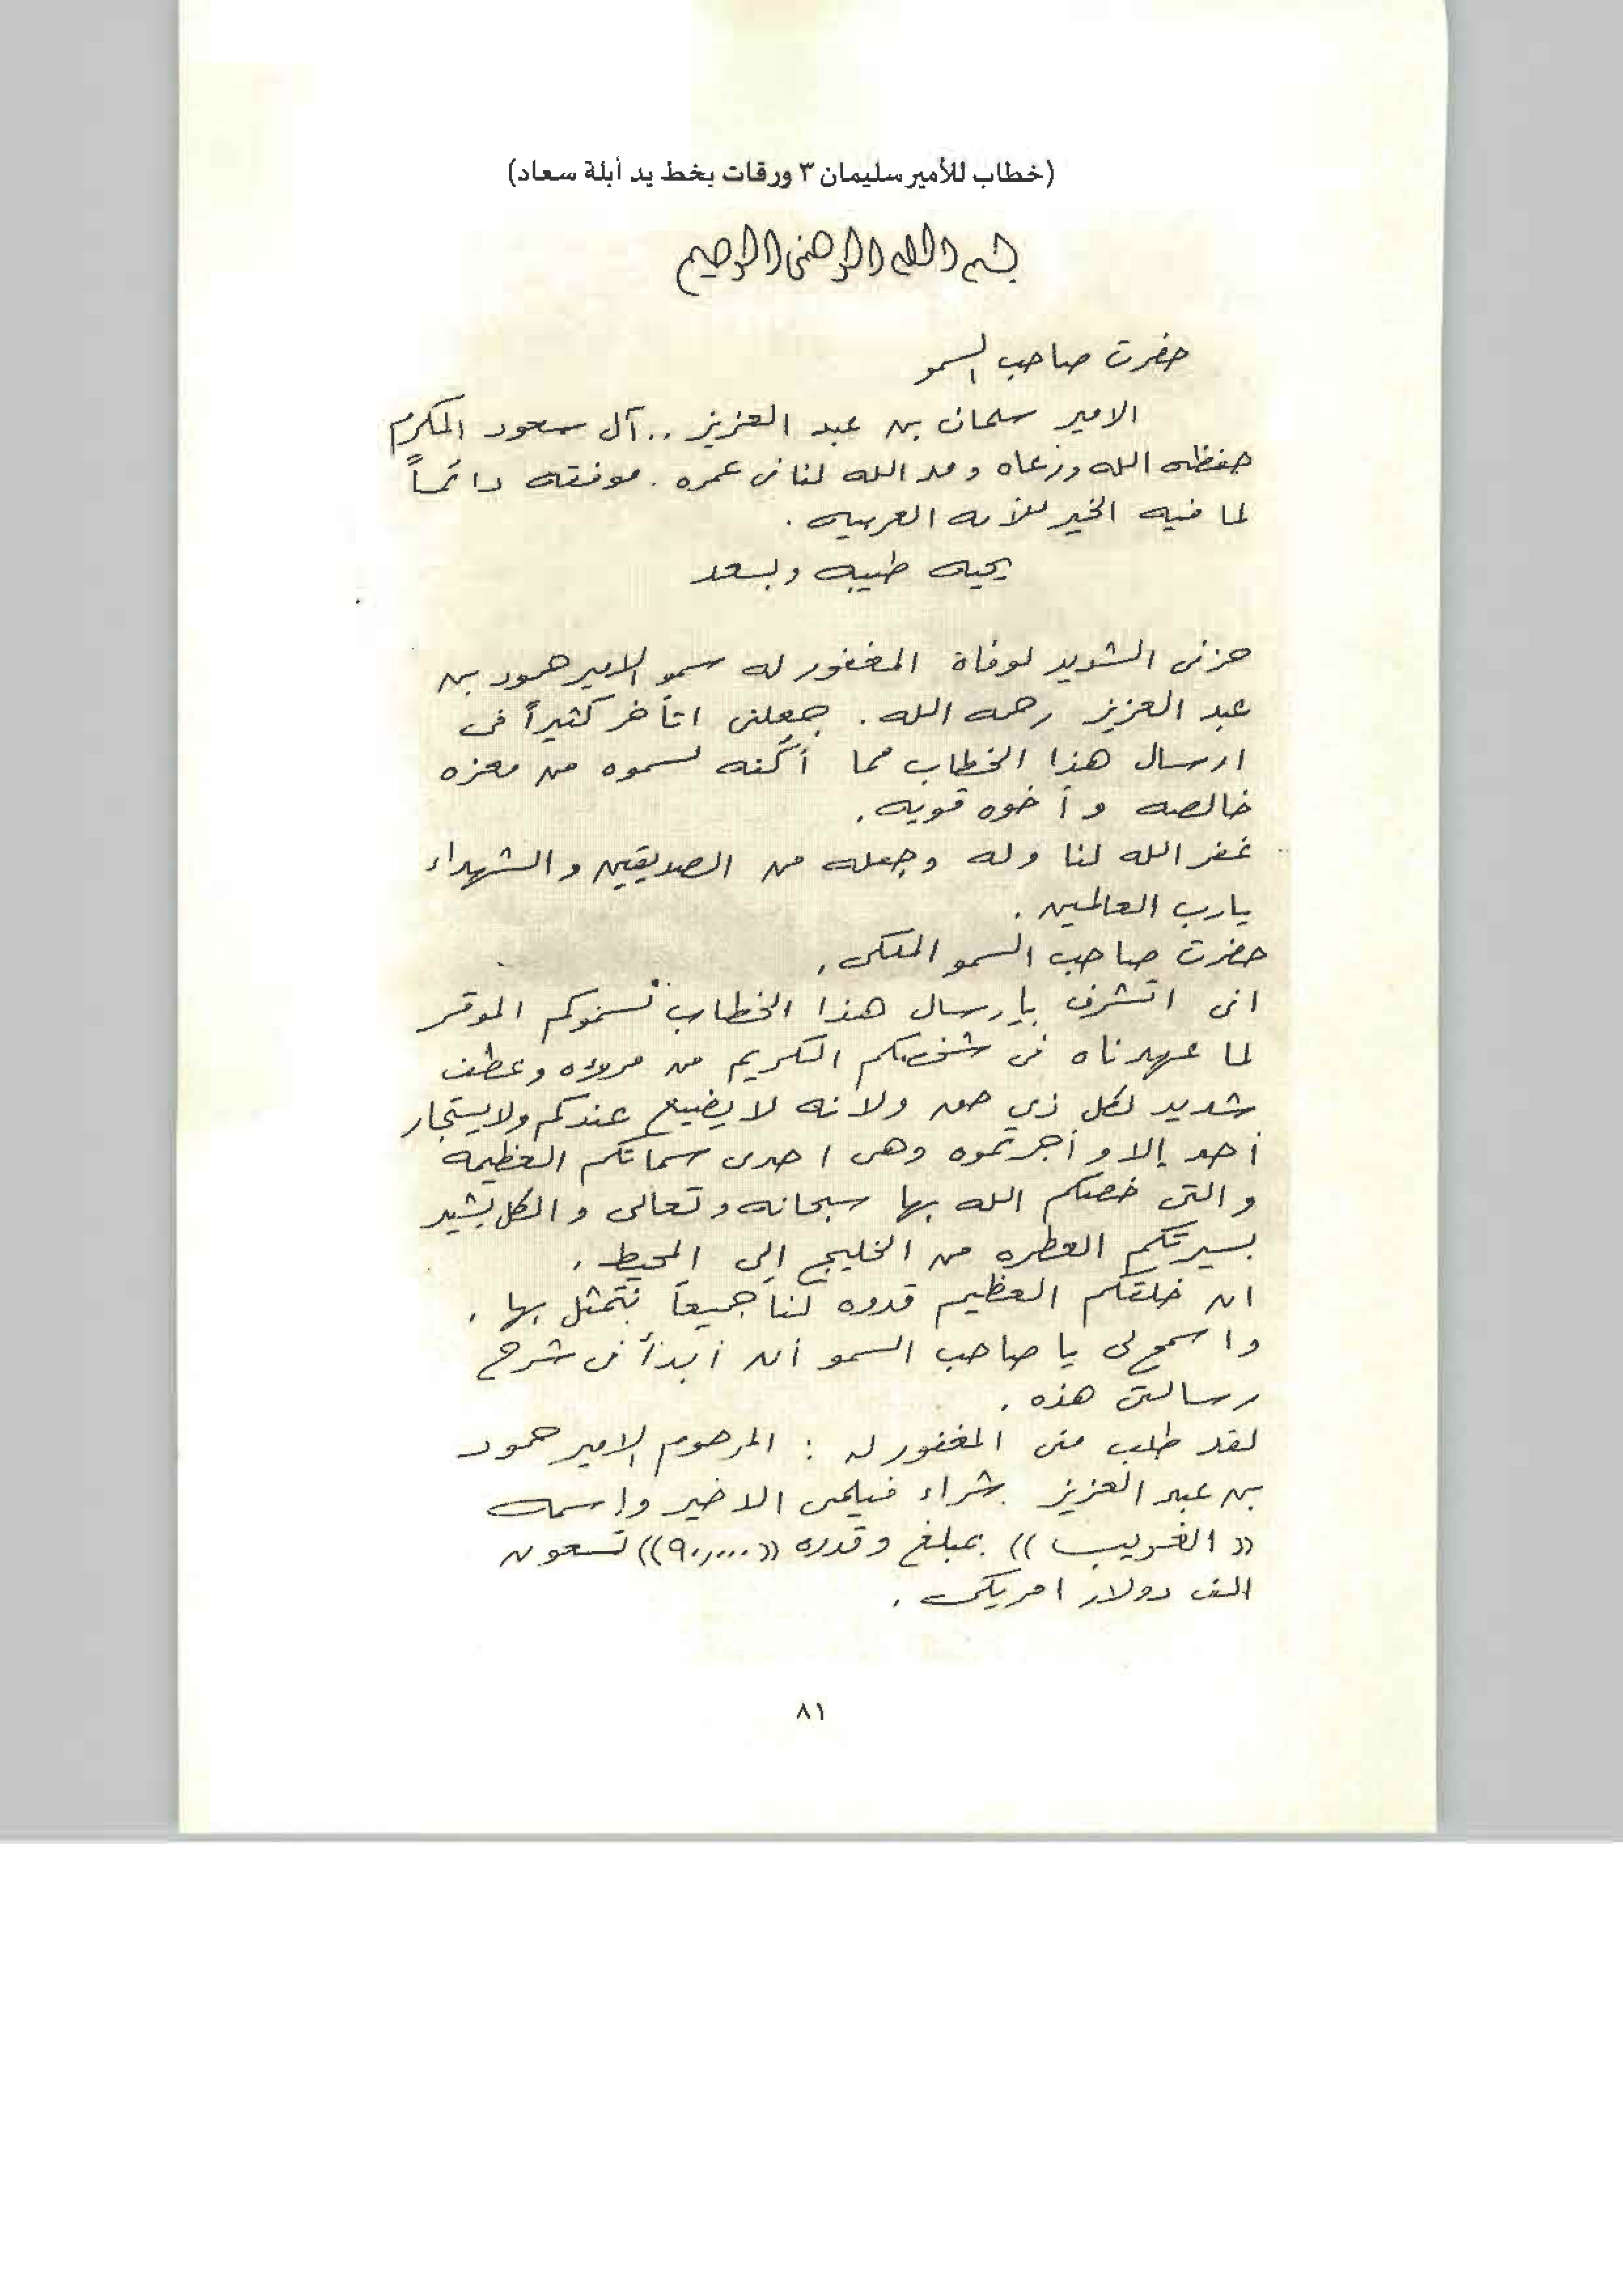 (خطاب للأمير سليمان ٣ ورقات بخط يد أبلة سعاد)
بسم الله الرحمن الرحيم
حضرت صاحب السمو
الامير سلمان بن عبد العزيز .. آل سعود المكرم
حفظه الله ورعاه ومد الله لنا فى عمره . موفقه دائماً
لما فيه الخير للأمه العربيه .
تحيه طيبه وبعد
حزنى الشديد لوفاة المغفور له سمو الامير حمود بن
عبد العزيز رحمه الله . جعلنى اتأخر كثيراً فى
ارسال هذا الخطاب مما أكنه لسموه من معزه
خالصه وأخوه قويه .
غفر الله لنا وله وجعله من الصديقين والشهداء
يارب العالمين .
حضرت صاحب السمو الملكى .
انى اتشرف بإرسال هذا الخطاب لسموكم الموقر
لما عهدناه فى شخصكم الكريم من مروءه وعطف
شديد لكل ذي حق ولانه لا يضيع عندكم ولا يستجار
أحد إلا وأجرتموه وهى احدى سماتكم العظيمه
والتى خصكم الله بها سبحانه وتعالى والكل يشيد
بسيرتكم العطره من الخليج إلى المحيط .
ان خلقكم العظيم قدوه لنا جميعاً نتمثل بها .
واسمح لى يا صاحب السمو أن أبدأ فى شرح
رسالتى هذه .
لقد طلب منى المغفور له : المرحوم الامير حمود
بن عبد العزيز شراء فيلمى الاخير وإسمه
(( الغريب )) بمبلغ وقدره ((٩٠,٠٠٠)) تسعون
الف دولار امريكى .
٨١